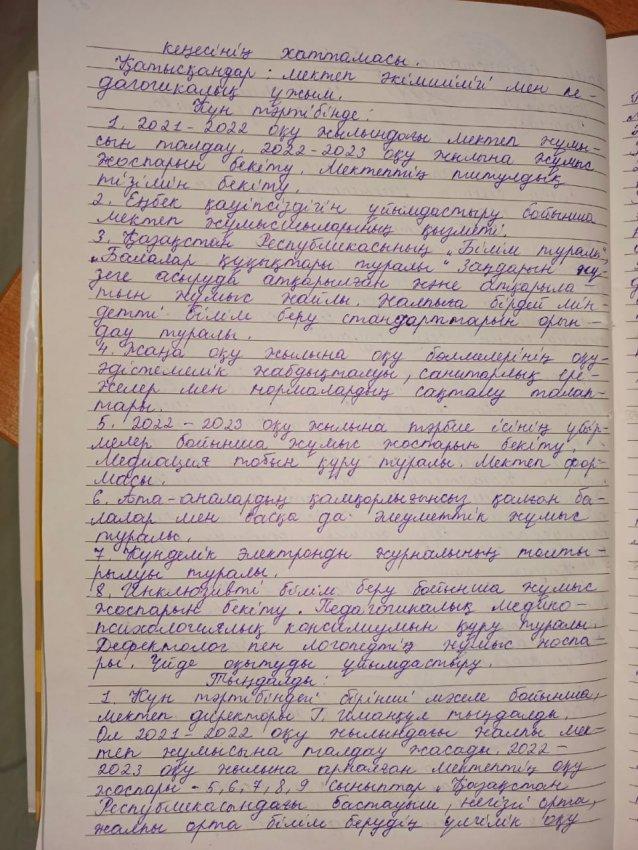 кеңесінің хаттамасы.
Қатысқандар: мектеп әкімшілігі мен пе-
дагогикалық ұжым.
Күн тәртібінде:
1. 2021-2022 оқу жылындағы мектеп жұмы-
сын талдау. 2022-2023 оқу жылына жұмыс
жоспарын бекіту. Мектептің титулдық
тізімін бекіту.
2. Еңбек қауіпсіздігін ұйымдастыру бойынша
мектеп жұмысшыларының қызметі.
3. Қазақстан Республикасының „Білім туралы",
„Балалар құқықтары туралы" Заңдарын жү-
зеге асыруда атқарылған және атқарыла-
тын жұмыс жайлы. Жалпыға бірдей мін-
детті білім беру стандарттарын орын-
дау туралы.
4. Жаңа оқу жылына оқу бөлмелерінің оқу-
әдістемелік жабдықталуы, санитарлық ере-
желер мен нормалардың сақталу талап-
тары.
5. 2022-2023 оқу жылына тәрбие ісінің үйір-
мелер бойынша жұмыс жоспарын бекіту.
Медиация тобын құру туралы. Мектеп фор-
масы.
6. Ата-аналардың қамқорлығынсыз қалған ба-
лалар мен басқа да әлеуметтік жұмыс
туралы.
7 Күнделік электронды журналының толты-
рылуы туралы.
8. Инклюзивті білім беру бойынша жұмыс
жоспарын бекіту. Педагогикалық медико-
психологиялық консилиумын құру туралы.
Дефектолог пен логопедтің жұмыс жоспа-
ры. Үйде оқытуды ұйымдастыру.
Тыңдалды:
1. Күн тәртібіндегі бірінші мәселе бойынша,
мектеп директоры Г. Иманқұл тыңдалды.
Ол 2021-2022 оқу жылындағы жалпы мек-
теп жұмысына талдау жасады. 2022-
2023 оқу жылына арналған мектептің оқу
жоспары - 5, 6, 7, 8, 9 сыныптар „Қазақстан
Республикасындағы бастауыш, негізгі орта,
жалпы орта білім берудің үлгілік оқу